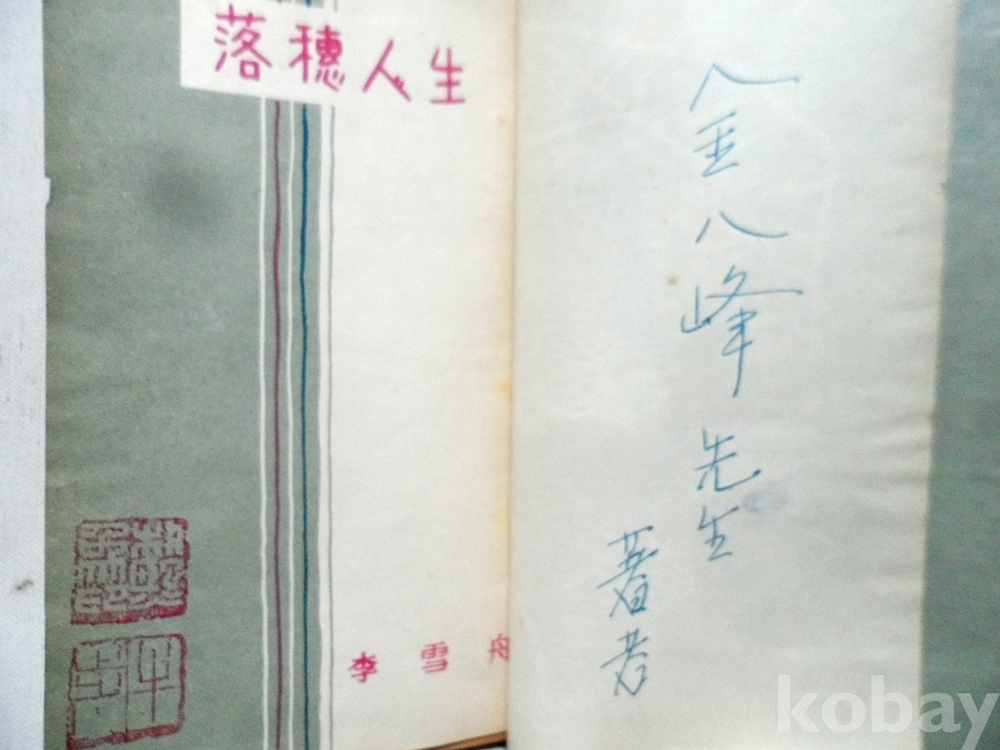 落穗人生
李雪舟
金八峰 先生
著者
kobay